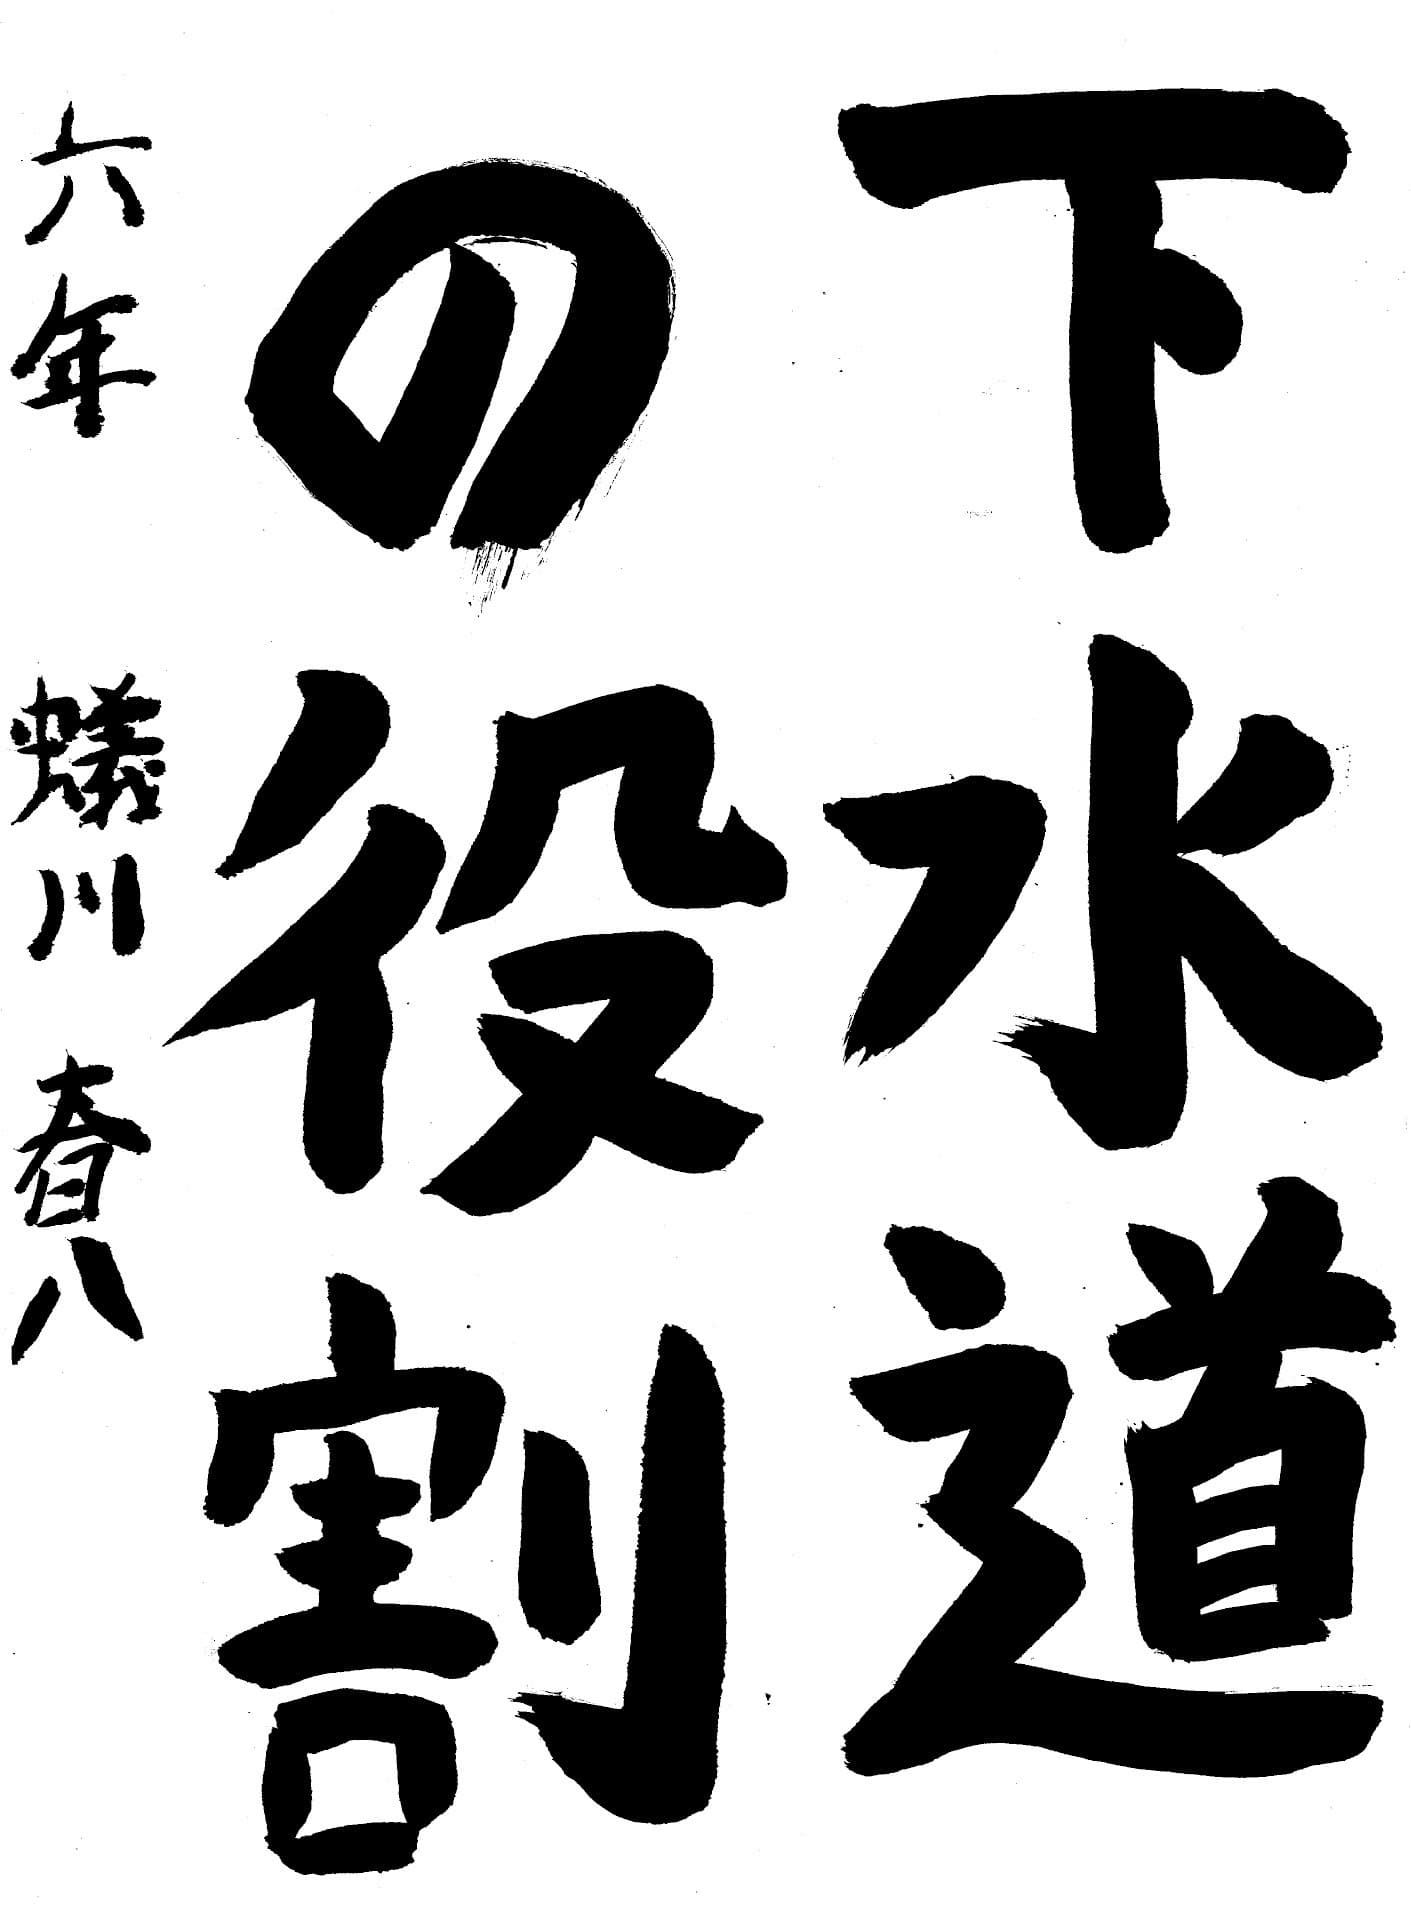 下水道
の役割
六年 蟻川 春八